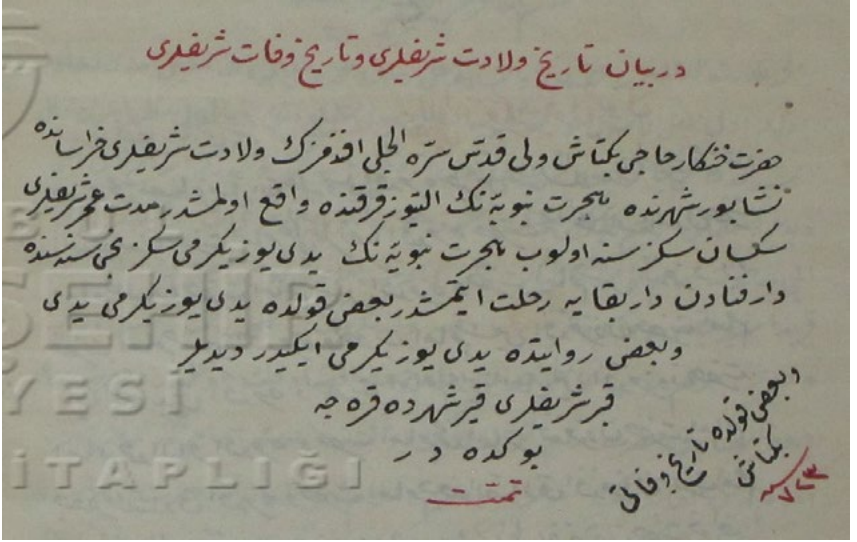 در بیان تاریخ ولادت شریفلری و تاریخ وفات شریفلری
حضرت خنکار حاجی بکتاش ولی قدس سره الجلی افندمزک ولادت شریفلری خراسانده
نشابور شهرنده هجرت نبویه نک التیوز قرقنده واقع اولمشدر مدت عمر شریفلری
سکسان سکز سنه اولوب هجرت نبویه نک یدی یوز یکرمی سکزنجی سنه سنده
دار فنادن دار بقایه رحلت ایتمشدر بعض قولده یدی یوز یکرمی یدی
و بعض روایتده یدی یوز یکرمی ایکیدر دیدیلر
قبر شریفلری قیر شهرده قره جه
بوکده در
تمت
و بعض قولده تاریخ وفاتی
بکتاش
سنه ٧٢٣
BUL
ŞEHİR
YESİ
İTAPLIĞI